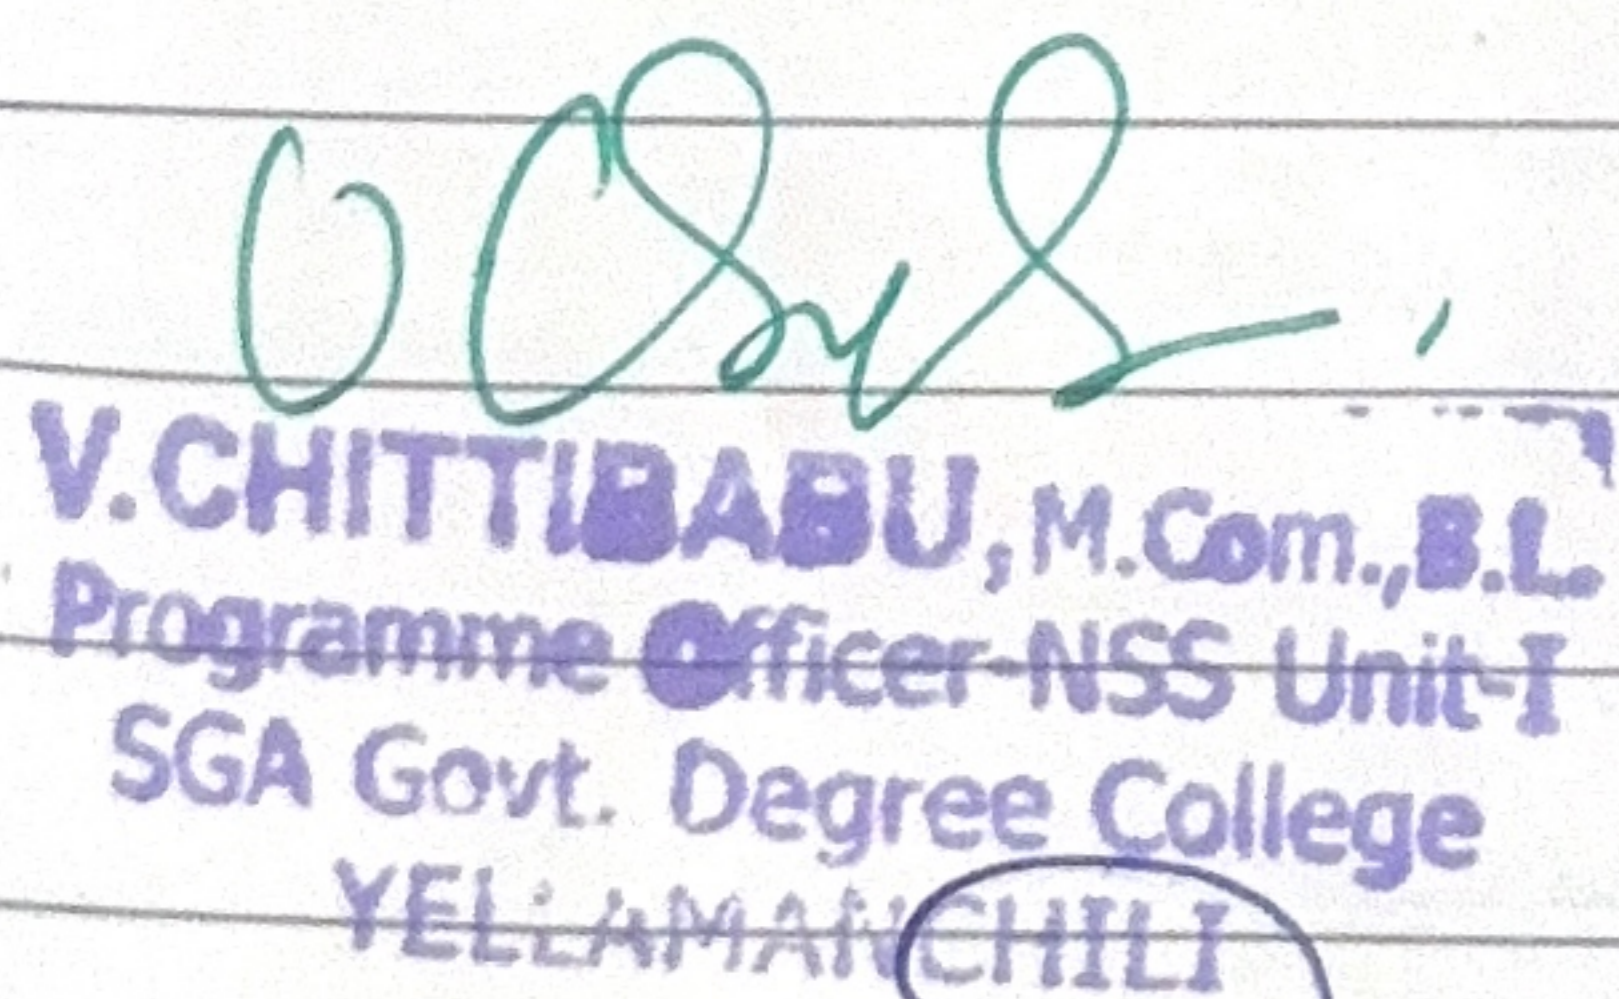 V.CHITTIBABU, M.Com.,B.L.
Programme Officer-NSS Unit-I
SGA Govt. Degree College
YELLAMANCHILI